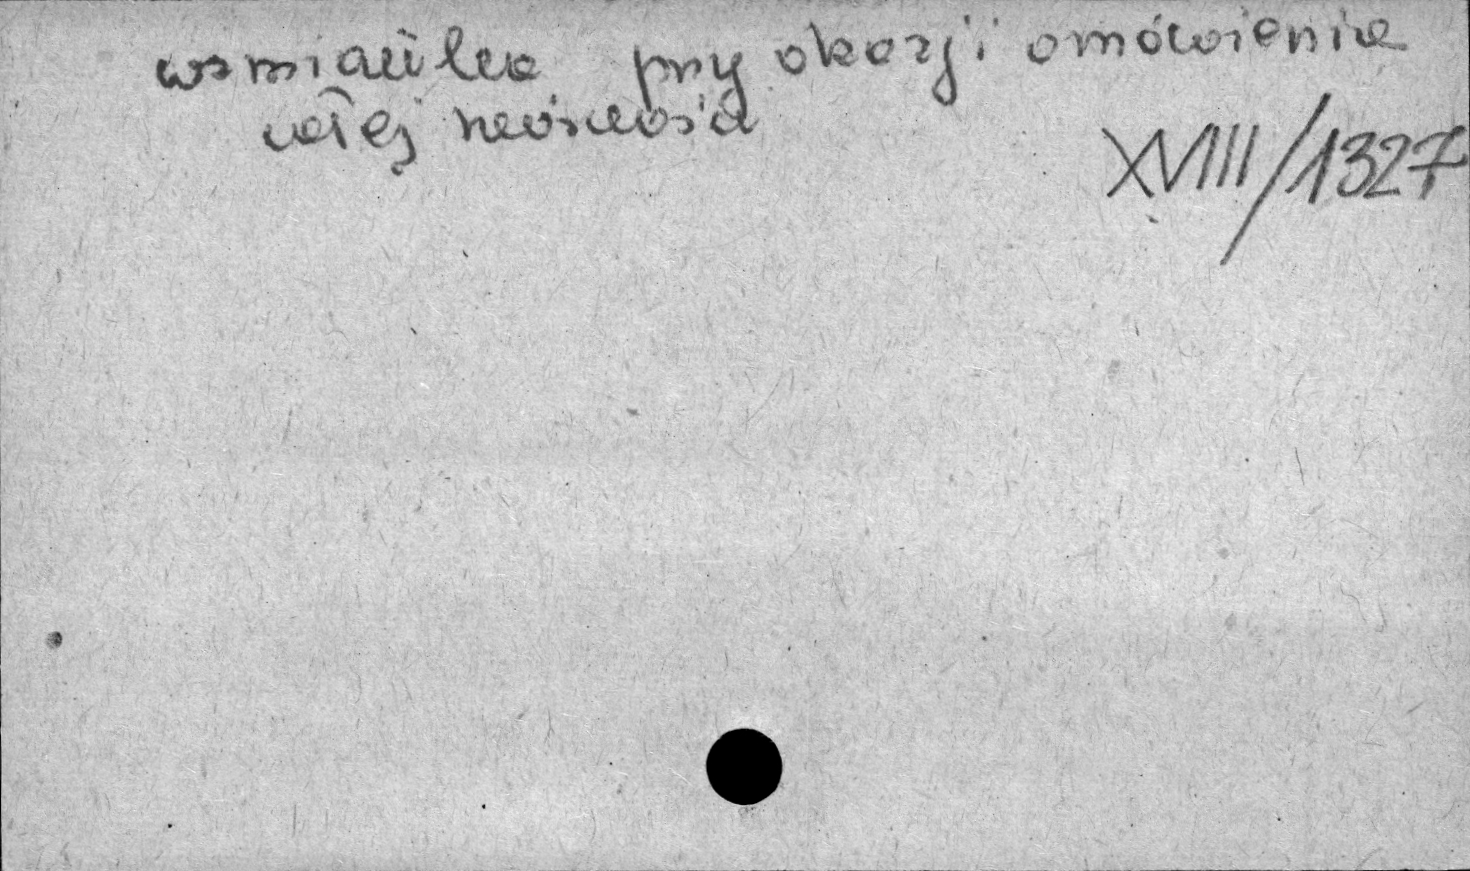 wzmianka przy okazji omówienia
całej twórczości
XVIII/1327